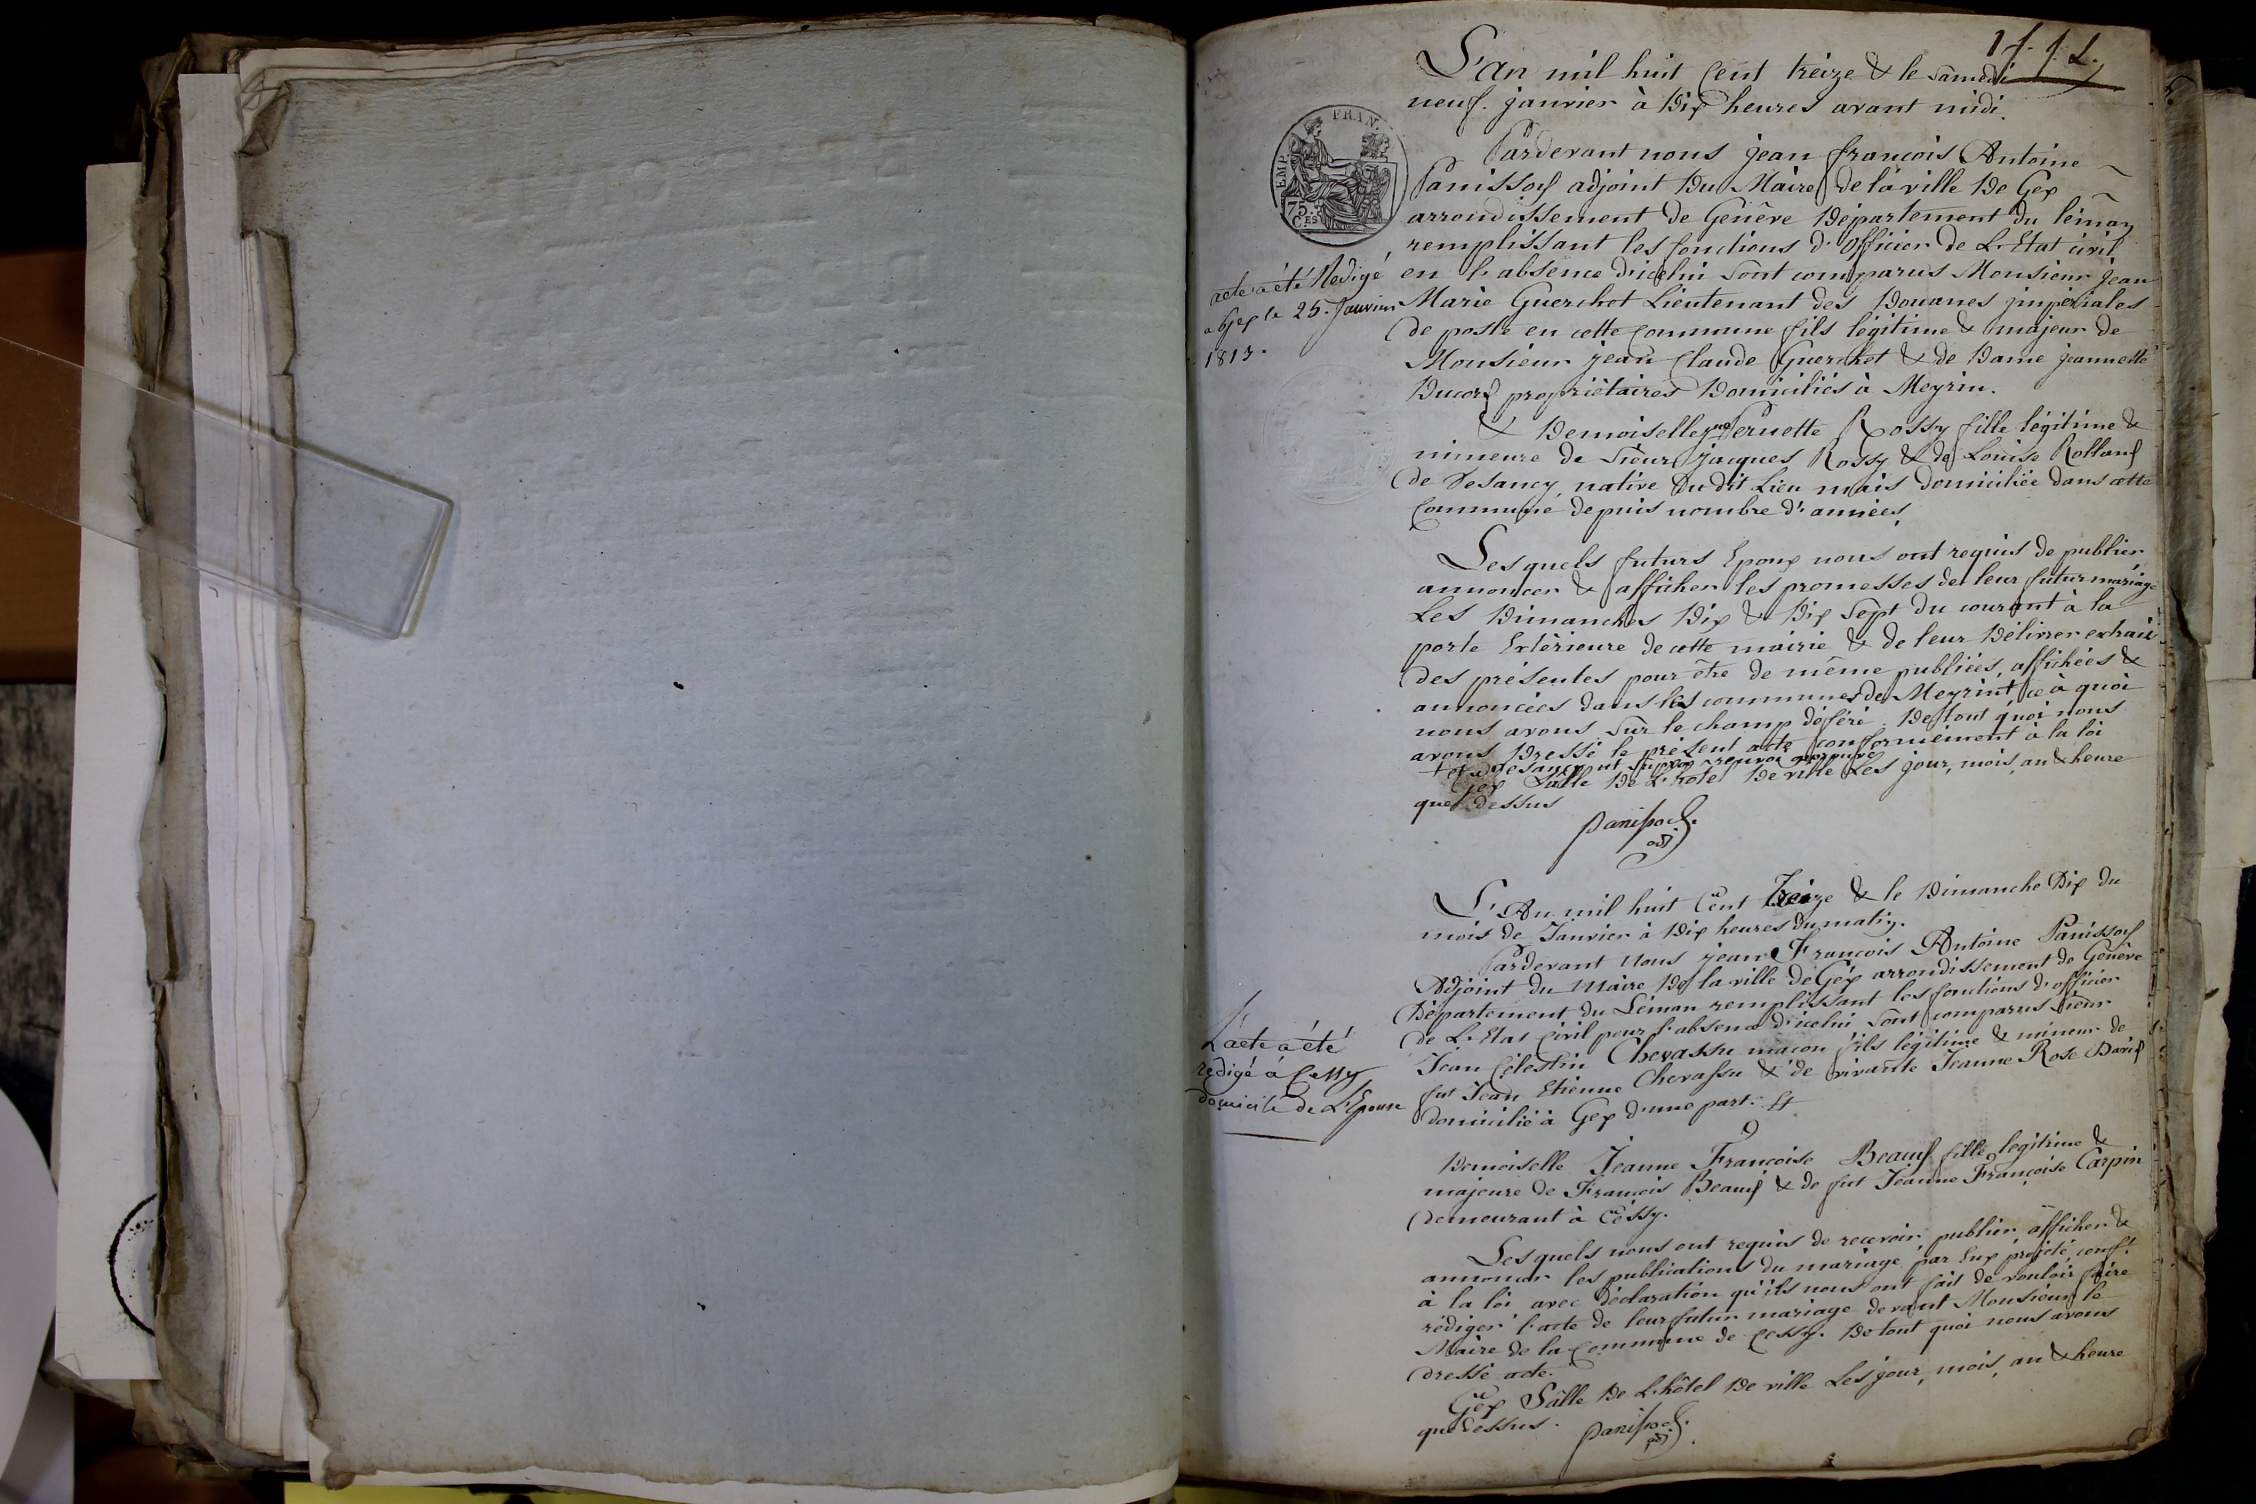 1 f. 1. L.
L'an mil huit Cent treize & le samedi
neuf. janvier à Dix heures avant midi.
EMP. FRAN.
75. CES
Pardevant nous jean françois Antoine
Panissod adjoint du Maire de la ville De Gex
arrondissement de Genêve Département du léman
remplissant les fonctions d'Officier de L'Etat civil
en l'absence d'icelui sont comparus Monsieur Jean
Marie Guerchot Lieutenant des Douanes impériales
de poste en cette Commune fils légitime & majeur de
Monsieur jean Claude Guerchot & de Dame jeannette
propriétaires Domiciliés à Meyrin.
acte a été Redigé
a Gex le 25. Janvier
1813.
& Demoiselle Pernette Rossy fille légitime &
mineure de Sieur jacques Rossy & de Louise Rolland
de Vesancy, native du dit Lieu mais domiciliée dans cette
Commune depuis nombre d'années,
Lesquels futurs Epoux nous ont requis de publier
annoncer & afficher les promesses de leur futur mariage
Les Dimanches Dix & Dix Sept du courant à la
porte Extèrieure de cette mairie & de leur Délivrer extrait
des présentes pour être de même publiées, affichées &
annoncées dans les communes de Meyrin ce à quoi
nous avons sur le champ déféré. De tout quoi nous
avons Dressé le présent acte conformément à la loi
+ et de Vesancy renvoi approuvé
Gex Salle De L'hotel De ville Les jour, mois, an & heure
que dessus
Panissod.
adj
L'An mil huit Cent treize & le Dimanche Dix du
mois de Janvier à Dix heures du matin.
Pardevant Nous jean François Antoine Panissod
Adjoint du Maire De la ville de Gex arrondissement de Genêve
Département du Léman remplissant les fonctions d'officier
de L'Etat Civil pour l'absence d'icelui sont comparus Sieur
Jean Célestin Chevassu maçon fils légitime & mineur de
fut Jean Etienne Chevassu & de vivante Jeanne Rose David
domicilié à Gex d'une part. Et
L'acte a été
redigé à Cessy
domicile de L'Epouse
Demoiselle Jeanne Françoise Beauf fille legitime &
majeure de François Beauf & de fut Jeanne Françoise Carpin
demeurant à Cessy.
Lesquels nous ont requis de recevoir, publier, afficher &
annoncer les publications du mariage par Eux projeté, conft.
à la loi avec déclaration qu'ils nous ont fait de vouloir faire
rédiger l'acte de leur futur mariage devant Monsieur le
Maire de la Commune de Cessy. De tout quoi nous avons
dressé acte.
Gex Salle De L'hôtel De ville Les jour, mois, an & heure
que dessus.
Panissod.
adj.